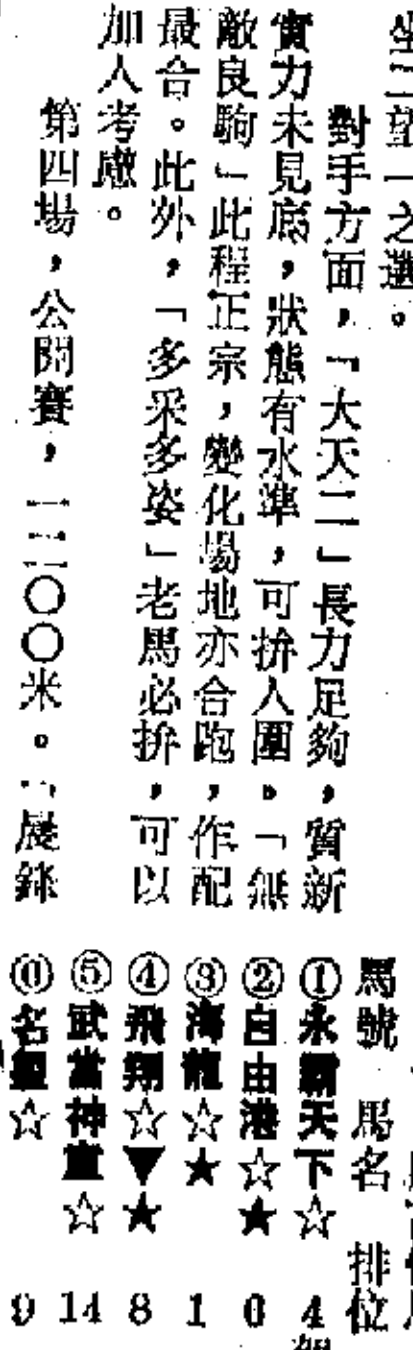 坐二望一之選。
對手方面，「大天二」長力足夠，質新
實力未見底，狀態有水準，可拚入圍。「無
敵良駒」此程正宗，變化場地亦合跑，作配
最合。此外，「多采多姿」老馬必拚，可以
加入考慮。
第四場，公開賽，一二〇〇米。「展鋒
馬號 馬名 排位
①永霸天下☆ 4
②自由港☆★ 6
③海龍☆★ 1
④飛翔☆▼★ 8
⑤武當神童☆ 14
⑥名豐☆ 9